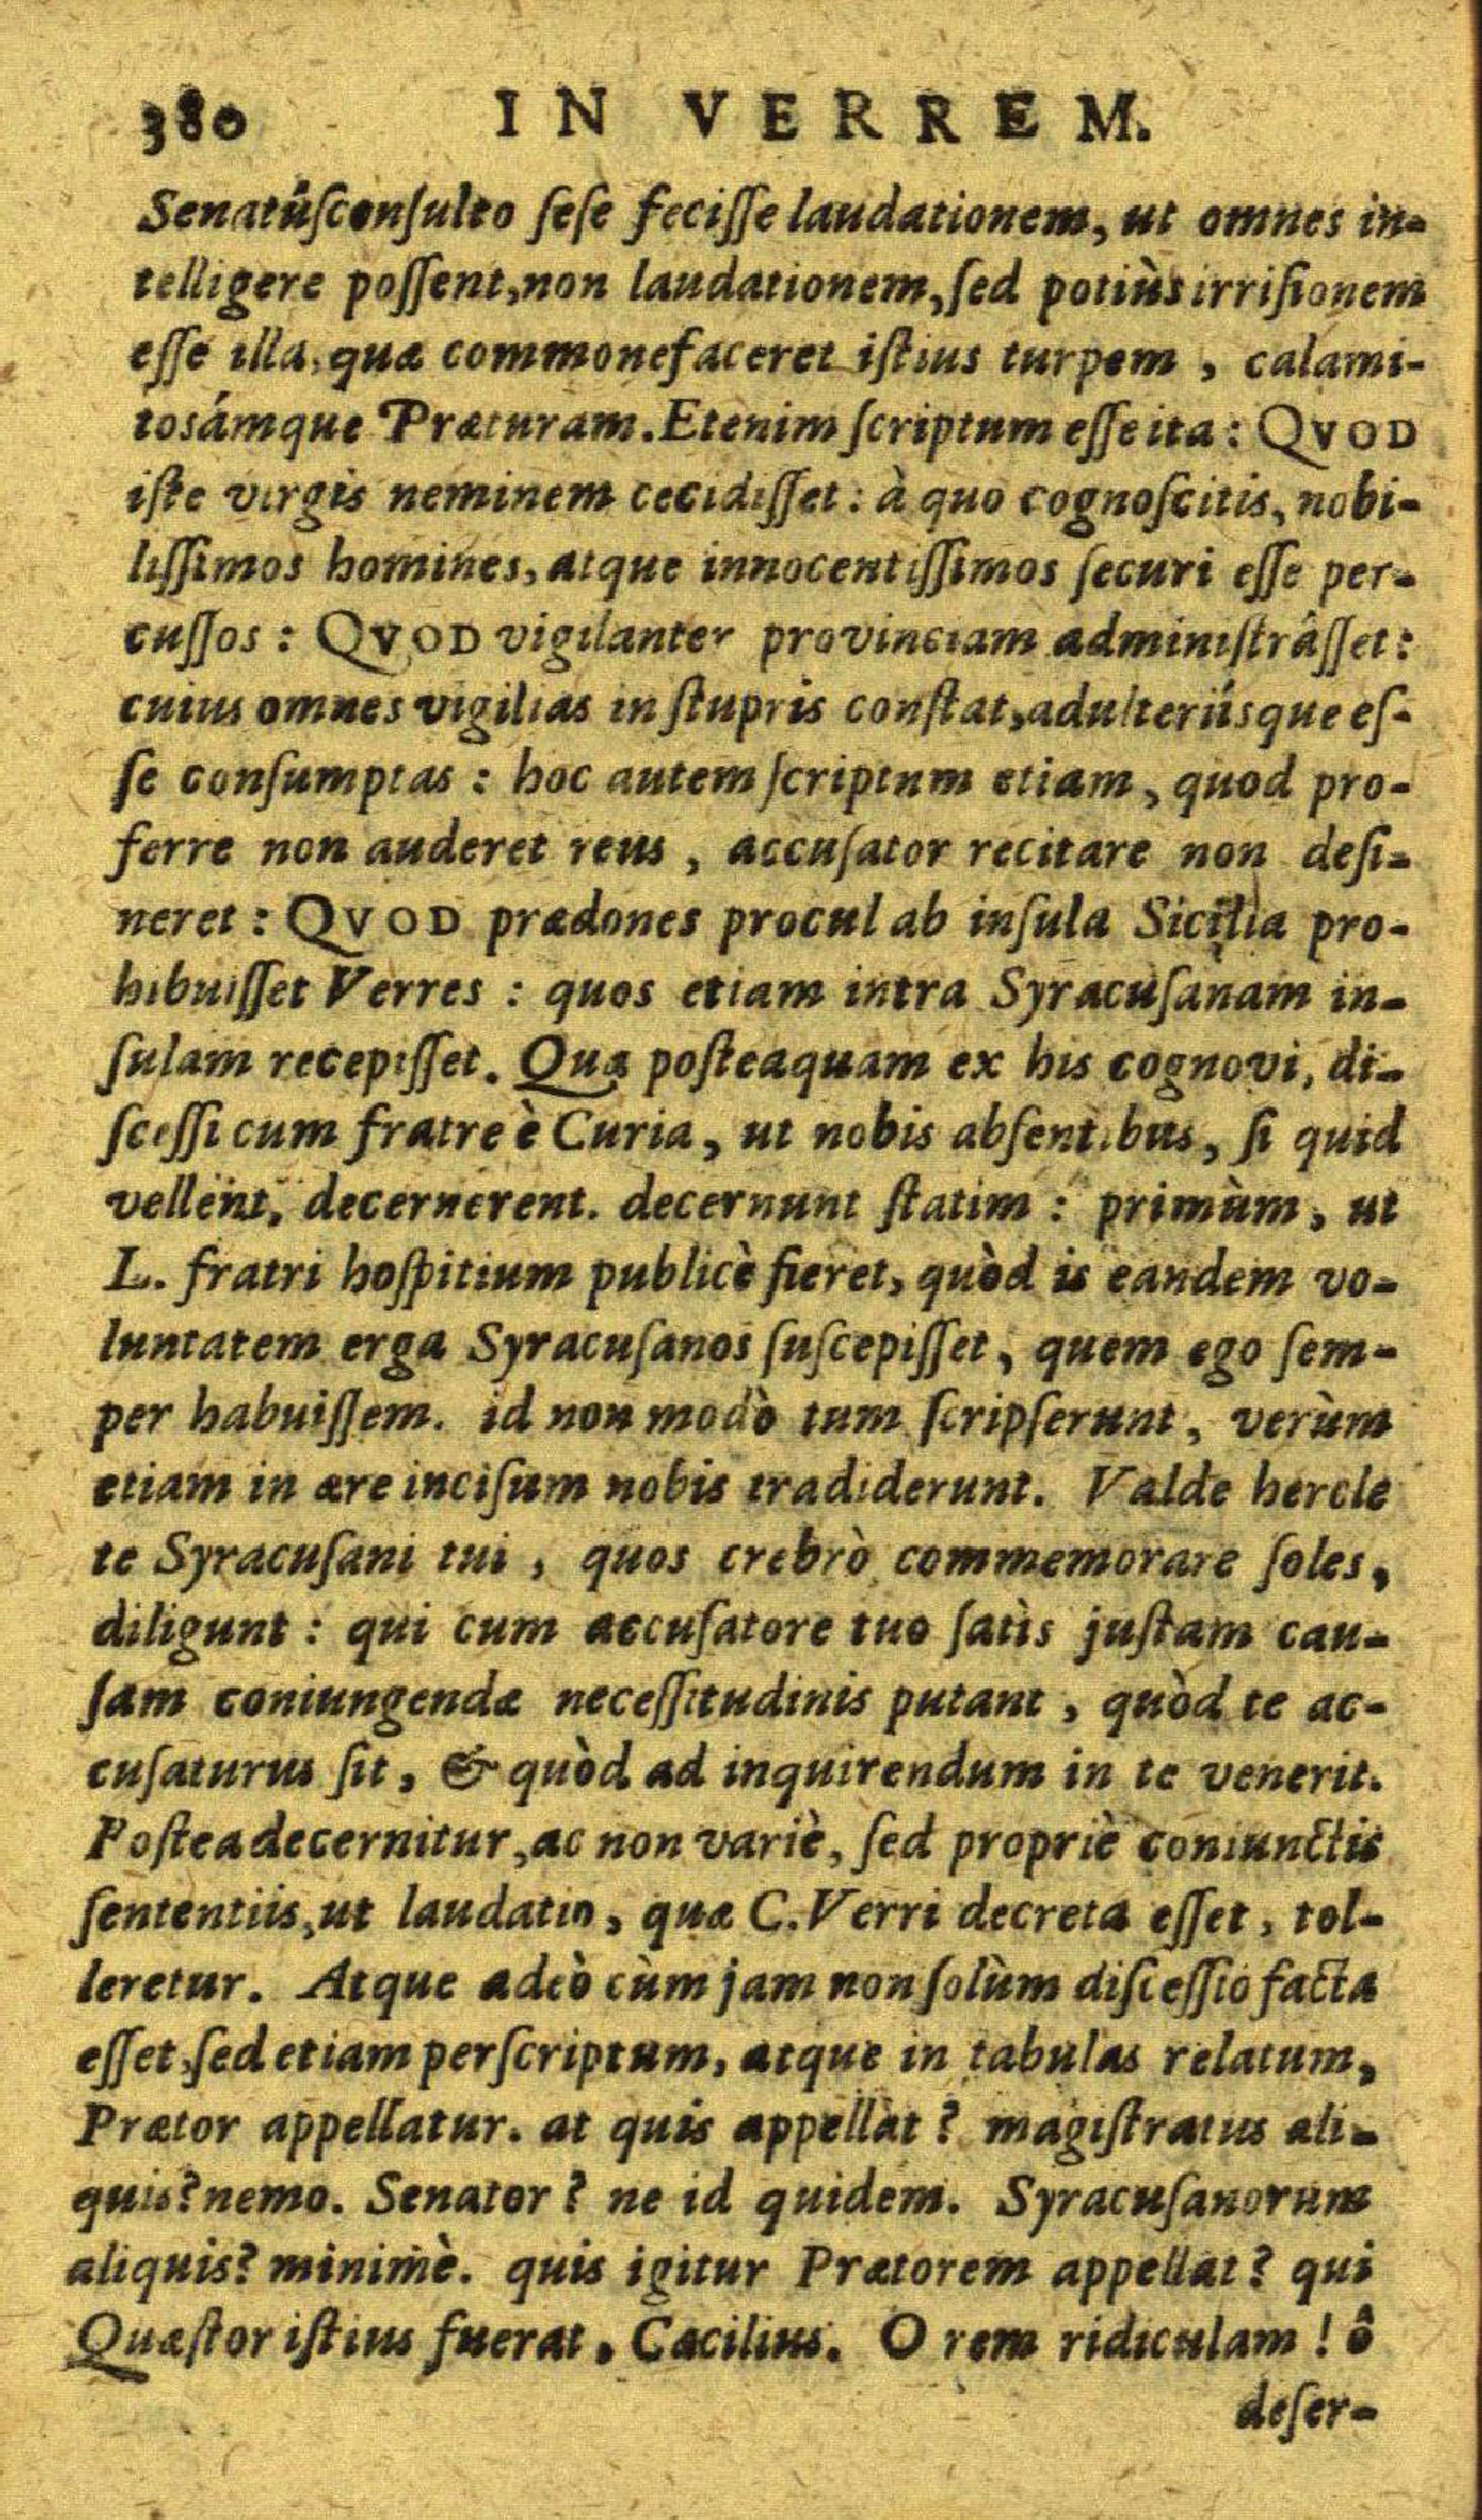 380 IN VERREM.
Senatûſconſulto ſeſe feciſſe laudationem, ut omnes in-
telligere poſſent, non laudationem, ſed potiùs irriſionem
eſſe illa, quæ commonefaceret iſtius turpem, calami-
tosámque Præturam. Etenim ſcriptum eſſe ita: QVOD
iſte virgis neminem cecidiſſet: à quo cognoſcitis, nobi-
liſſimos homines, atque innocentiſſimos ſecuri eſſe per-
cuſſos: QVOD vigilanter provinciam adminiſtrâſſet:
cuius omnes vigilias in ſtupris conſtat, adulteriiſque eſ-
ſe conſumptas: hoc autem ſcriptum etiam, quod pro-
ferre non auderet reus, accuſator recitare non deſi-
neret: QVOD prædones procul ab inſula Sicilia pro-
hibuiſſet Verres: quos etiam intra Syracuſanam in-
ſulam recepiſſet. Quæ poſteaquam ex his cognovi, di-
ſceſſi cum fratre è Curia, ut nobis abſentibus, ſi quid
vellent, decernerent. decernunt ſtatim: primùm, ut
L. fratri hoſpitium publicè fieret, quòd is eandem vo-
luntatem erga Syracuſanos ſuſcepiſſet, quem ego ſem-
per habuiſſem. id non modò tum ſcripſerunt, verùm
etiam in ære inciſum nobis tradiderunt. Valde hercle
te Syracuſani tui, quos crebrò commemorare ſoles,
diligunt: qui cum accuſatore tuo ſatìs juſtam cau-
ſam coniungendæ neceſſitudinis putant, quòd te ac-
cuſaturus ſit, & quòd ad inquirendum in te venerit.
Poſtea decernitur, ac non variè, ſed propriè coniunctis
ſententiis, ut laudatio, quæ C. Verri decreta eſſet, tol-
leretur. Atque adeò cùm jam non ſolùm diſceſſio facta
eſſet, ſed etiam perſcriptum, atque in tabulas relatum,
Prætor appellatur. at quis appellat? magiſtratus ali-
quis? nemo. Senator? ne id quidem. Syracuſanorum
aliquis? minimè. quis igitur Prætorem appellat? qui
Quæſtor iſtius fuerat, Cæcilius. O rem ridiculam! ô
deſer-